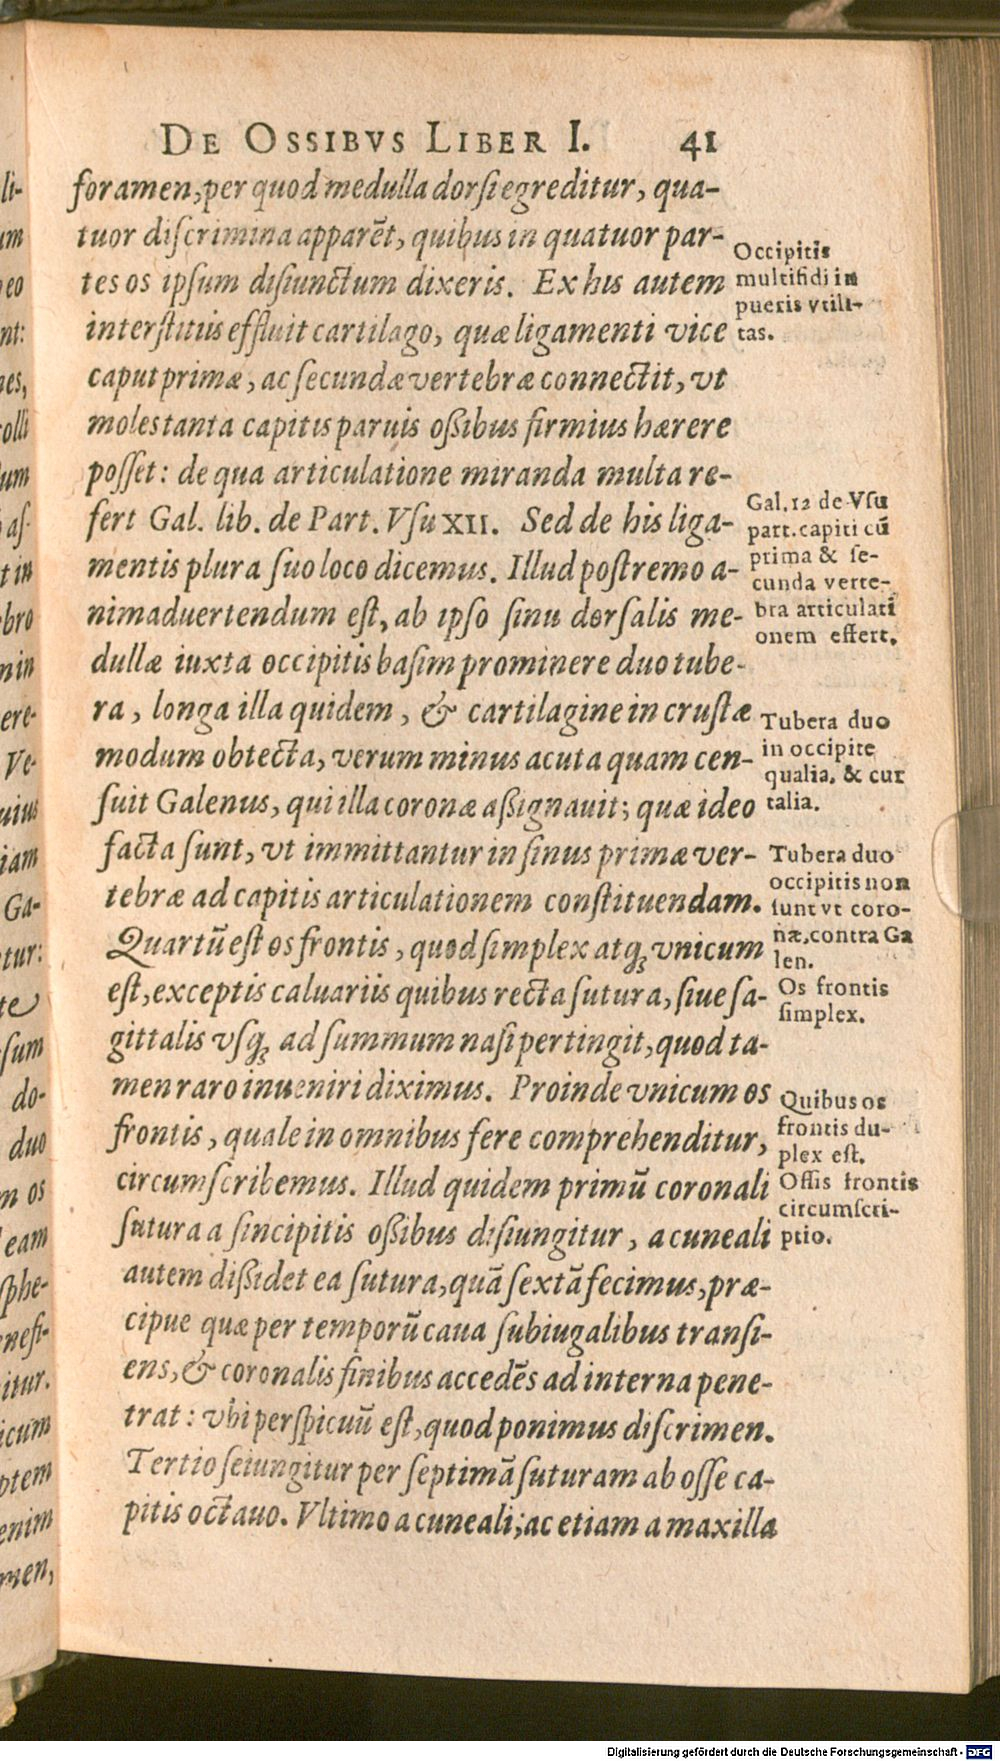 DE OSSIBVS LIBER I. 41
foramen, per quod medulla dorsi egreditur, qua-
tuor discrimina apparēt, quibus in quatuor par-
tes os ipsum disiunctum dixeris. Ex his autem
interstitiis effluit cartilago, quæ ligamenti vice
caput primæ, ac secundæ vertebræ connectit, vt
moles tanta capitis paruis ossibus firmius hærere
posset: de qua articulatione miranda multa re-
fert Gal. lib. de Part. Vsu XII. Sed de his liga-
mentis plura suo loco dicemus. Illud postremo a-
nimaduertendum est, ab ipso sinu dorsalis me-
dullæ iuxta occipitis basim prominere duo tube-
ra, longa illa quidem, & cartilagine in crustæ
modum obtecta, verum minus acuta quam cen-
suit Galenus, qui illa coronæ assignauit; quæ ideo
facta sunt, vt immittantur in sinus primæ ver-
tebræ ad capitis articulationem constituendam.
Quartū est os frontis, quod simplex atq; vnicum
est, exceptis caluariis quibus recta sutura, siue sa-
gittalis vsq; ad summum nasi pertingit, quod ta-
men raro inueniri diximus. Proinde vnicum os
frontis, quale in omnibus fere comprehenditur,
circumscribemus. Illud quidem primū coronali
sutura a sincipitis ossibus disiungitur, a cuneali
autem dissidet ea sutura, quā sextā fecimus, præ-
cipue quæ per temporū caua subiugalibus transi-
ens, & coronalis finibus accedēs ad interna pene-
trat: vbi perspicuū est, quod ponimus discrimen.
Tertio seiungitur per septimā suturam ab osse ca-
pitis octauo. Vltimo a cuneali; ac etiam a maxilla
Occipitis
multifidi in
pueris vtili-
tas.
Gal. 12 de Vsu
part. capiti cū
prima & se-
cunda verte-
bra articulati
onem effert.
Tubera duo
in occipite
qualia, & cur
talia.
Tubera duo
occipitis non
sunt vt coro-
næ, contra Ga
len.
Os frontis
simplex.
Quibus os
frontis du-
plex est.
Ossis frontis
circumscri-
ptio.
li-
um
eo
nt:
nes,
olli
um
as-
t in
bro
nin
ere-
Ve-
uius
iam
Ga-
tur:
te
sum
do-
duo
m os
eam
sphe-
nefi-
itur.
icum
ptem
enim
men,
Digitalisierung gefördert durch die Deutsche Forschungsgemeinschaft - DFG